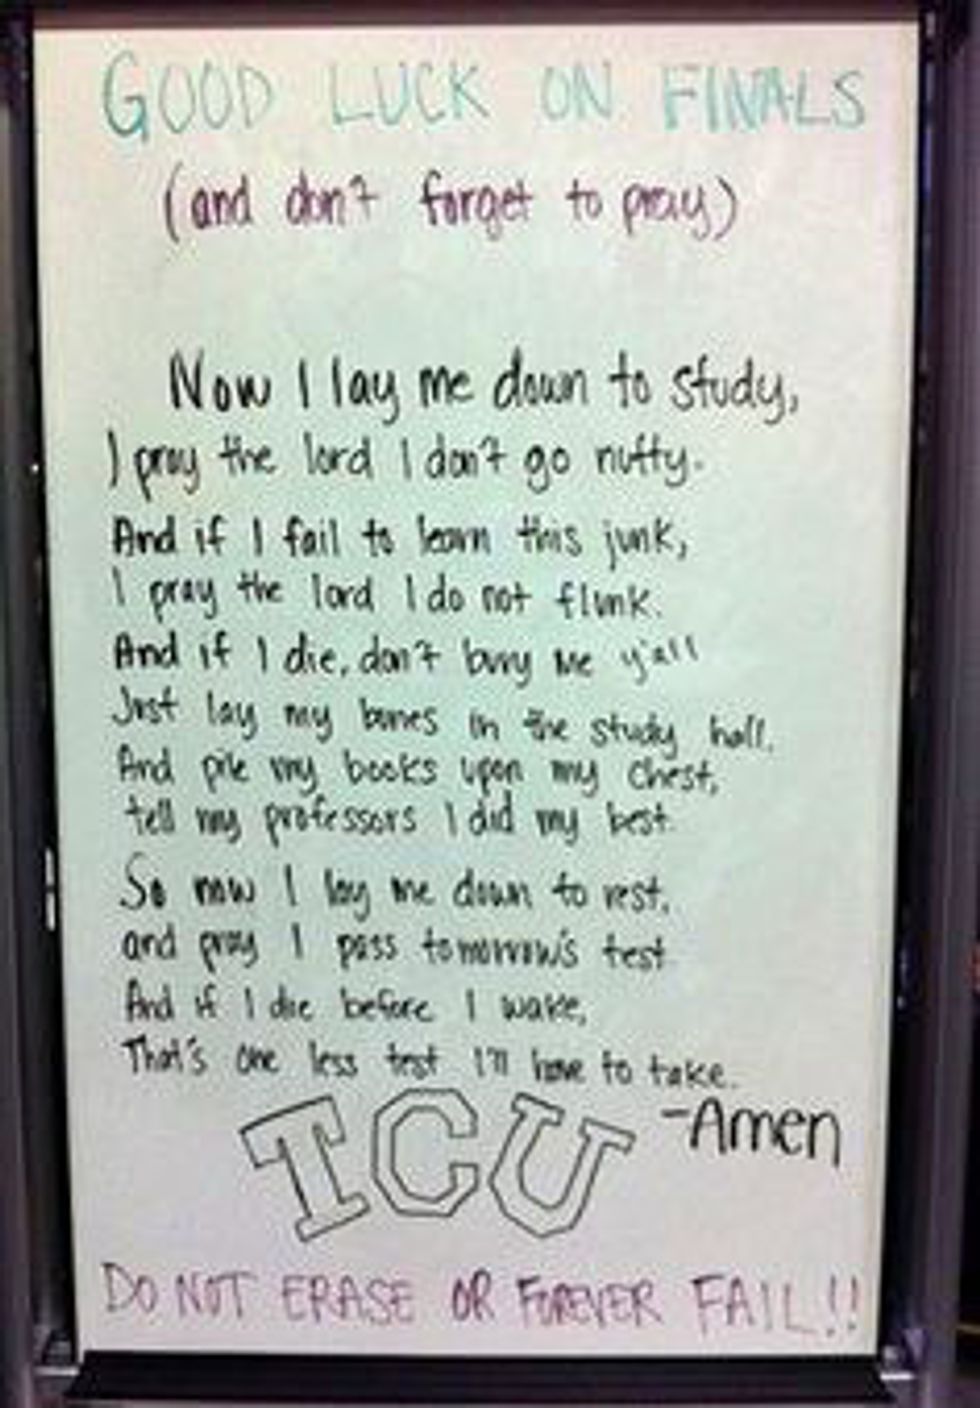 GOOD LUCK ON FINALS
(and don't forget to pray)
Now I lay me down to study,
I pray the lord I don't go nutty.
And if I fail to learn this junk,
I pray the lord I do not flunk.
And if I die, don't bury me y'all
Just lay my bones in the study hall.
And pile my books upon my chest,
tell my professors I did my best.
So now I lay me down to rest,
and pray I pass tomorrow's test.
And if I die before I wake,
That's one less test I'll have to take.
-Amen
TCU
DO NOT ERASE OR FOREVER FAIL!!